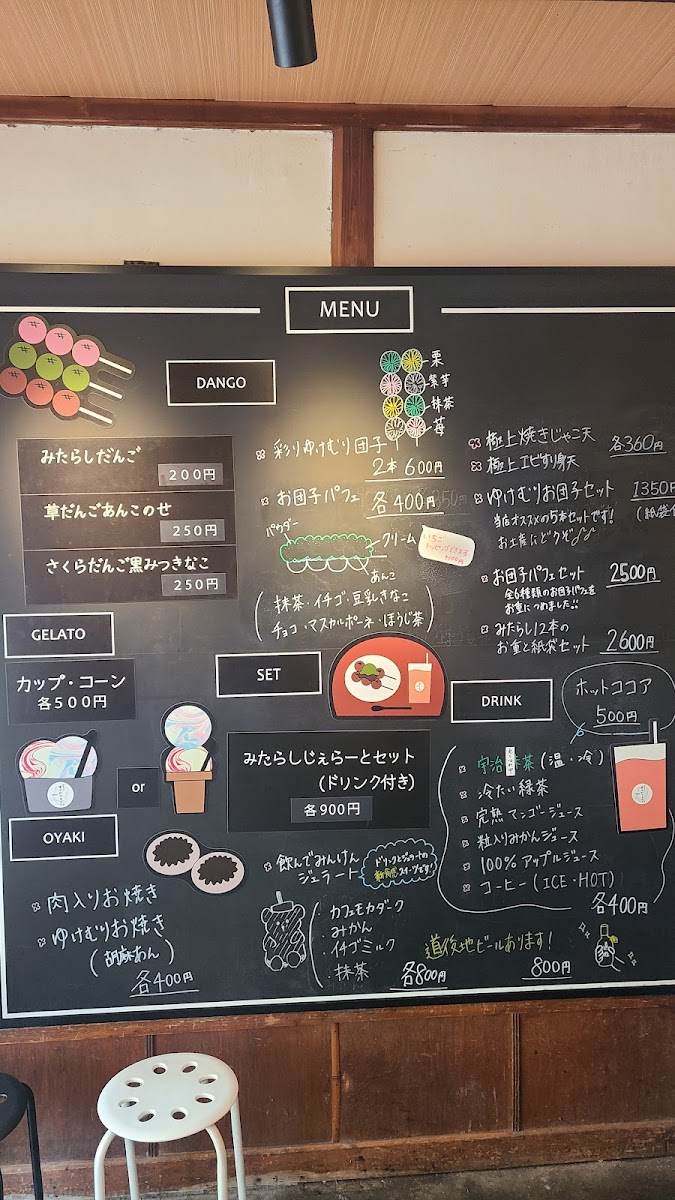 MENU
DANGO
みたらしだんご
200円
草だんごあんこのせ
250円
さくらだんご黒みつきなこ
250円
栗
紫芋
抹茶
苺
彩りゆけむり団子
2本 600円
お団子パフェ 各400円
パウダー
クリーム
あんこ
いちご
トッピングできます
抹茶・イチゴ・豆乳きなこ
チョコ・マスカルポーネ・ほうじ茶
極上焼きじゃこ天
極上エビすり身天
各360円
ゆけむりお団子セット 1350円
当店オススメの5本セットです!
お土産にどうぞ♪♪
お団子パフェセット 2500円
全6種類のお団子パフェを
お重につめました!!
みたらし12本の
お重と紙袋セット 2600円
GELATO
カップ・コーン
各500円
or
SET
みたらしじぇらーとセット
(ドリンク付き)
各900円
飲んでみんけん
ジェラート
カフェモカダーク
みかん
イチゴミルク
抹茶
各800円
DRINK
ホットココア
500円
宇治茶(温・冷)
冷たい緑茶
完熟マンゴージュース
粒入りみかんジュース
100%アップルジュース
コーヒー(ICE・HOT)
各400円
道後地ビールあります!
800円
OYAKI
肉入りお焼き
ゆけむりお焼き
(胡麻あん)
各400円